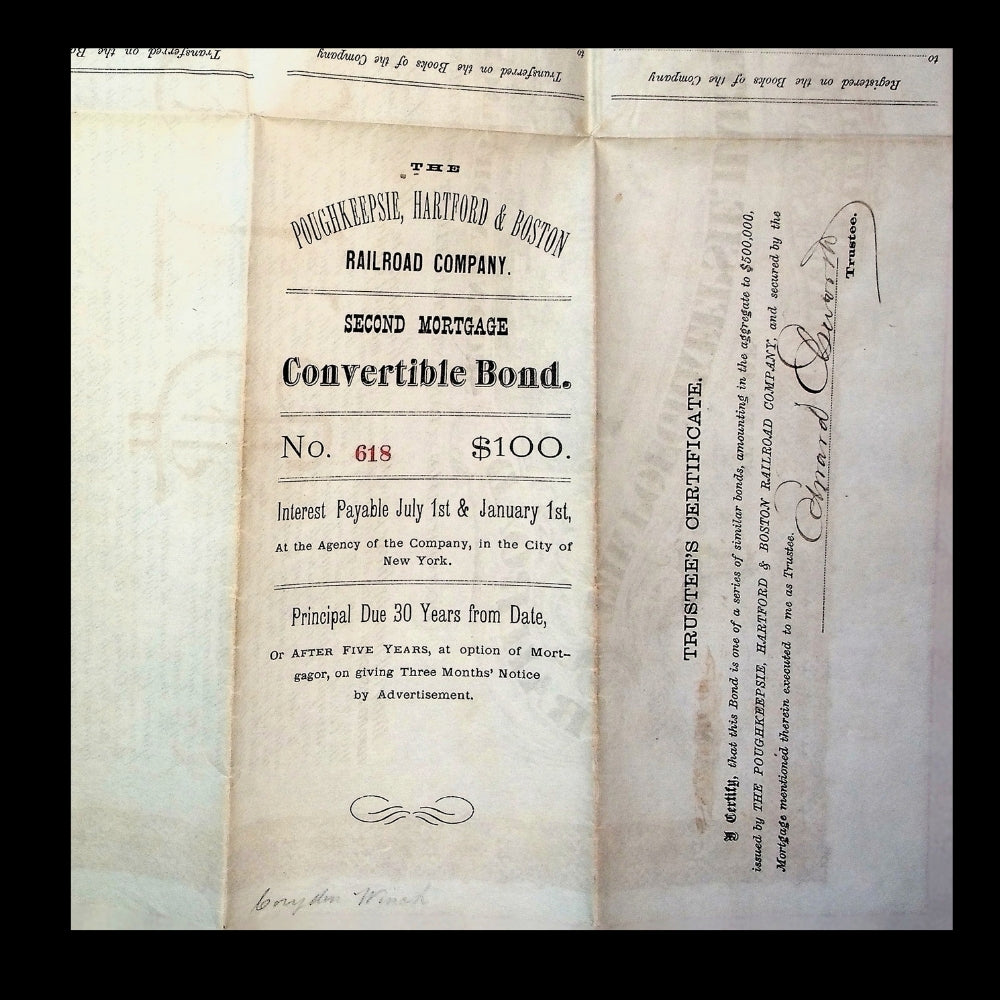 Transferred on the B
Transferred on the Books of the Company
to
Registered on the Books of the Company
to
THE
POUGHKEEPSIE, HARTFORD & BOSTON
RAILROAD COMPANY.
SECOND MORTGAGE
Convertible Bond.
No. 618 $100.
Interest Payable July 1st & January 1st,
At the Agency of the Company, in the City of
New York.
Principal Due 30 Years from Date,
Or AFTER FIVE YEARS, at option of Mort-
gagor, on giving Three Months' Notice
by Advertisement.
Corydon Winch
TRUSTEE'S CERTIFICATE.
I Certify, that this Bond is one of a series of similar bonds, amounting in the aggregate to $500,000,
issued by THE POUGHKEEPSIE, HARTFORD & BOSTON RAILROAD COMPANY, and secured by the
Mortgage mentioned therein executed to me as Trustee.
Edward
Trustee.